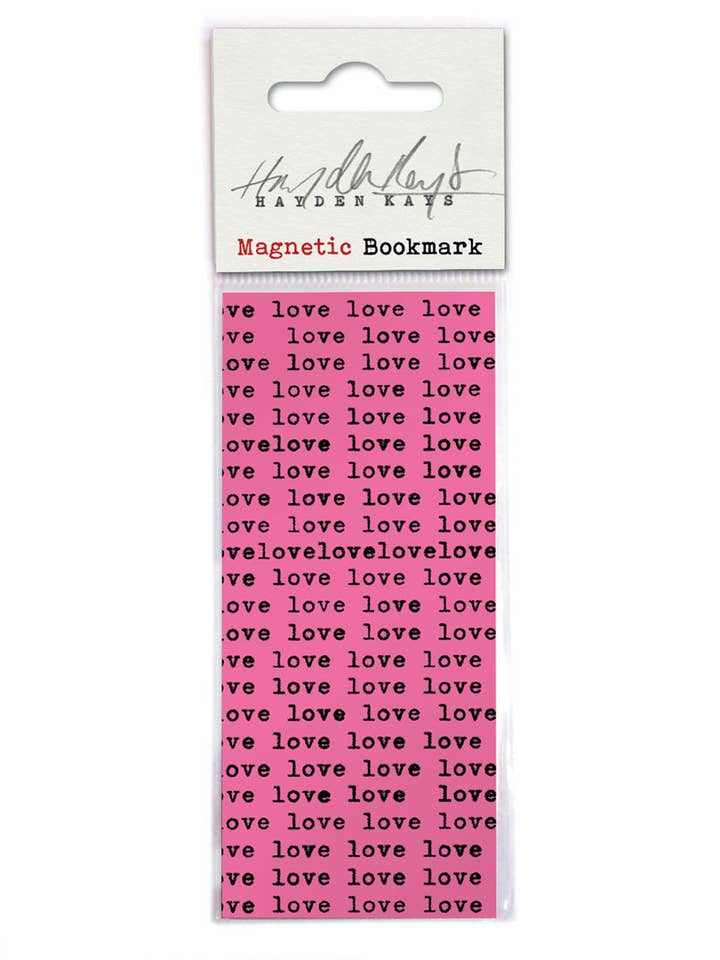 Hayden Kays
HAYDEN KAYS
Magnetic Bookmark
ve love love love
ve love love love
ove love love love
ve love love love
ve love love love
ovelove love love
ve love love love
ove love love love
ove love love love
velovelovelovelove
ve love love love
ove love love love
ove love love love
ve love love love
ve love love love
ove love love love
ve love love love
ove love love love
ve love love love
ove love love love
ve love love love
ve love love love
ve love love love